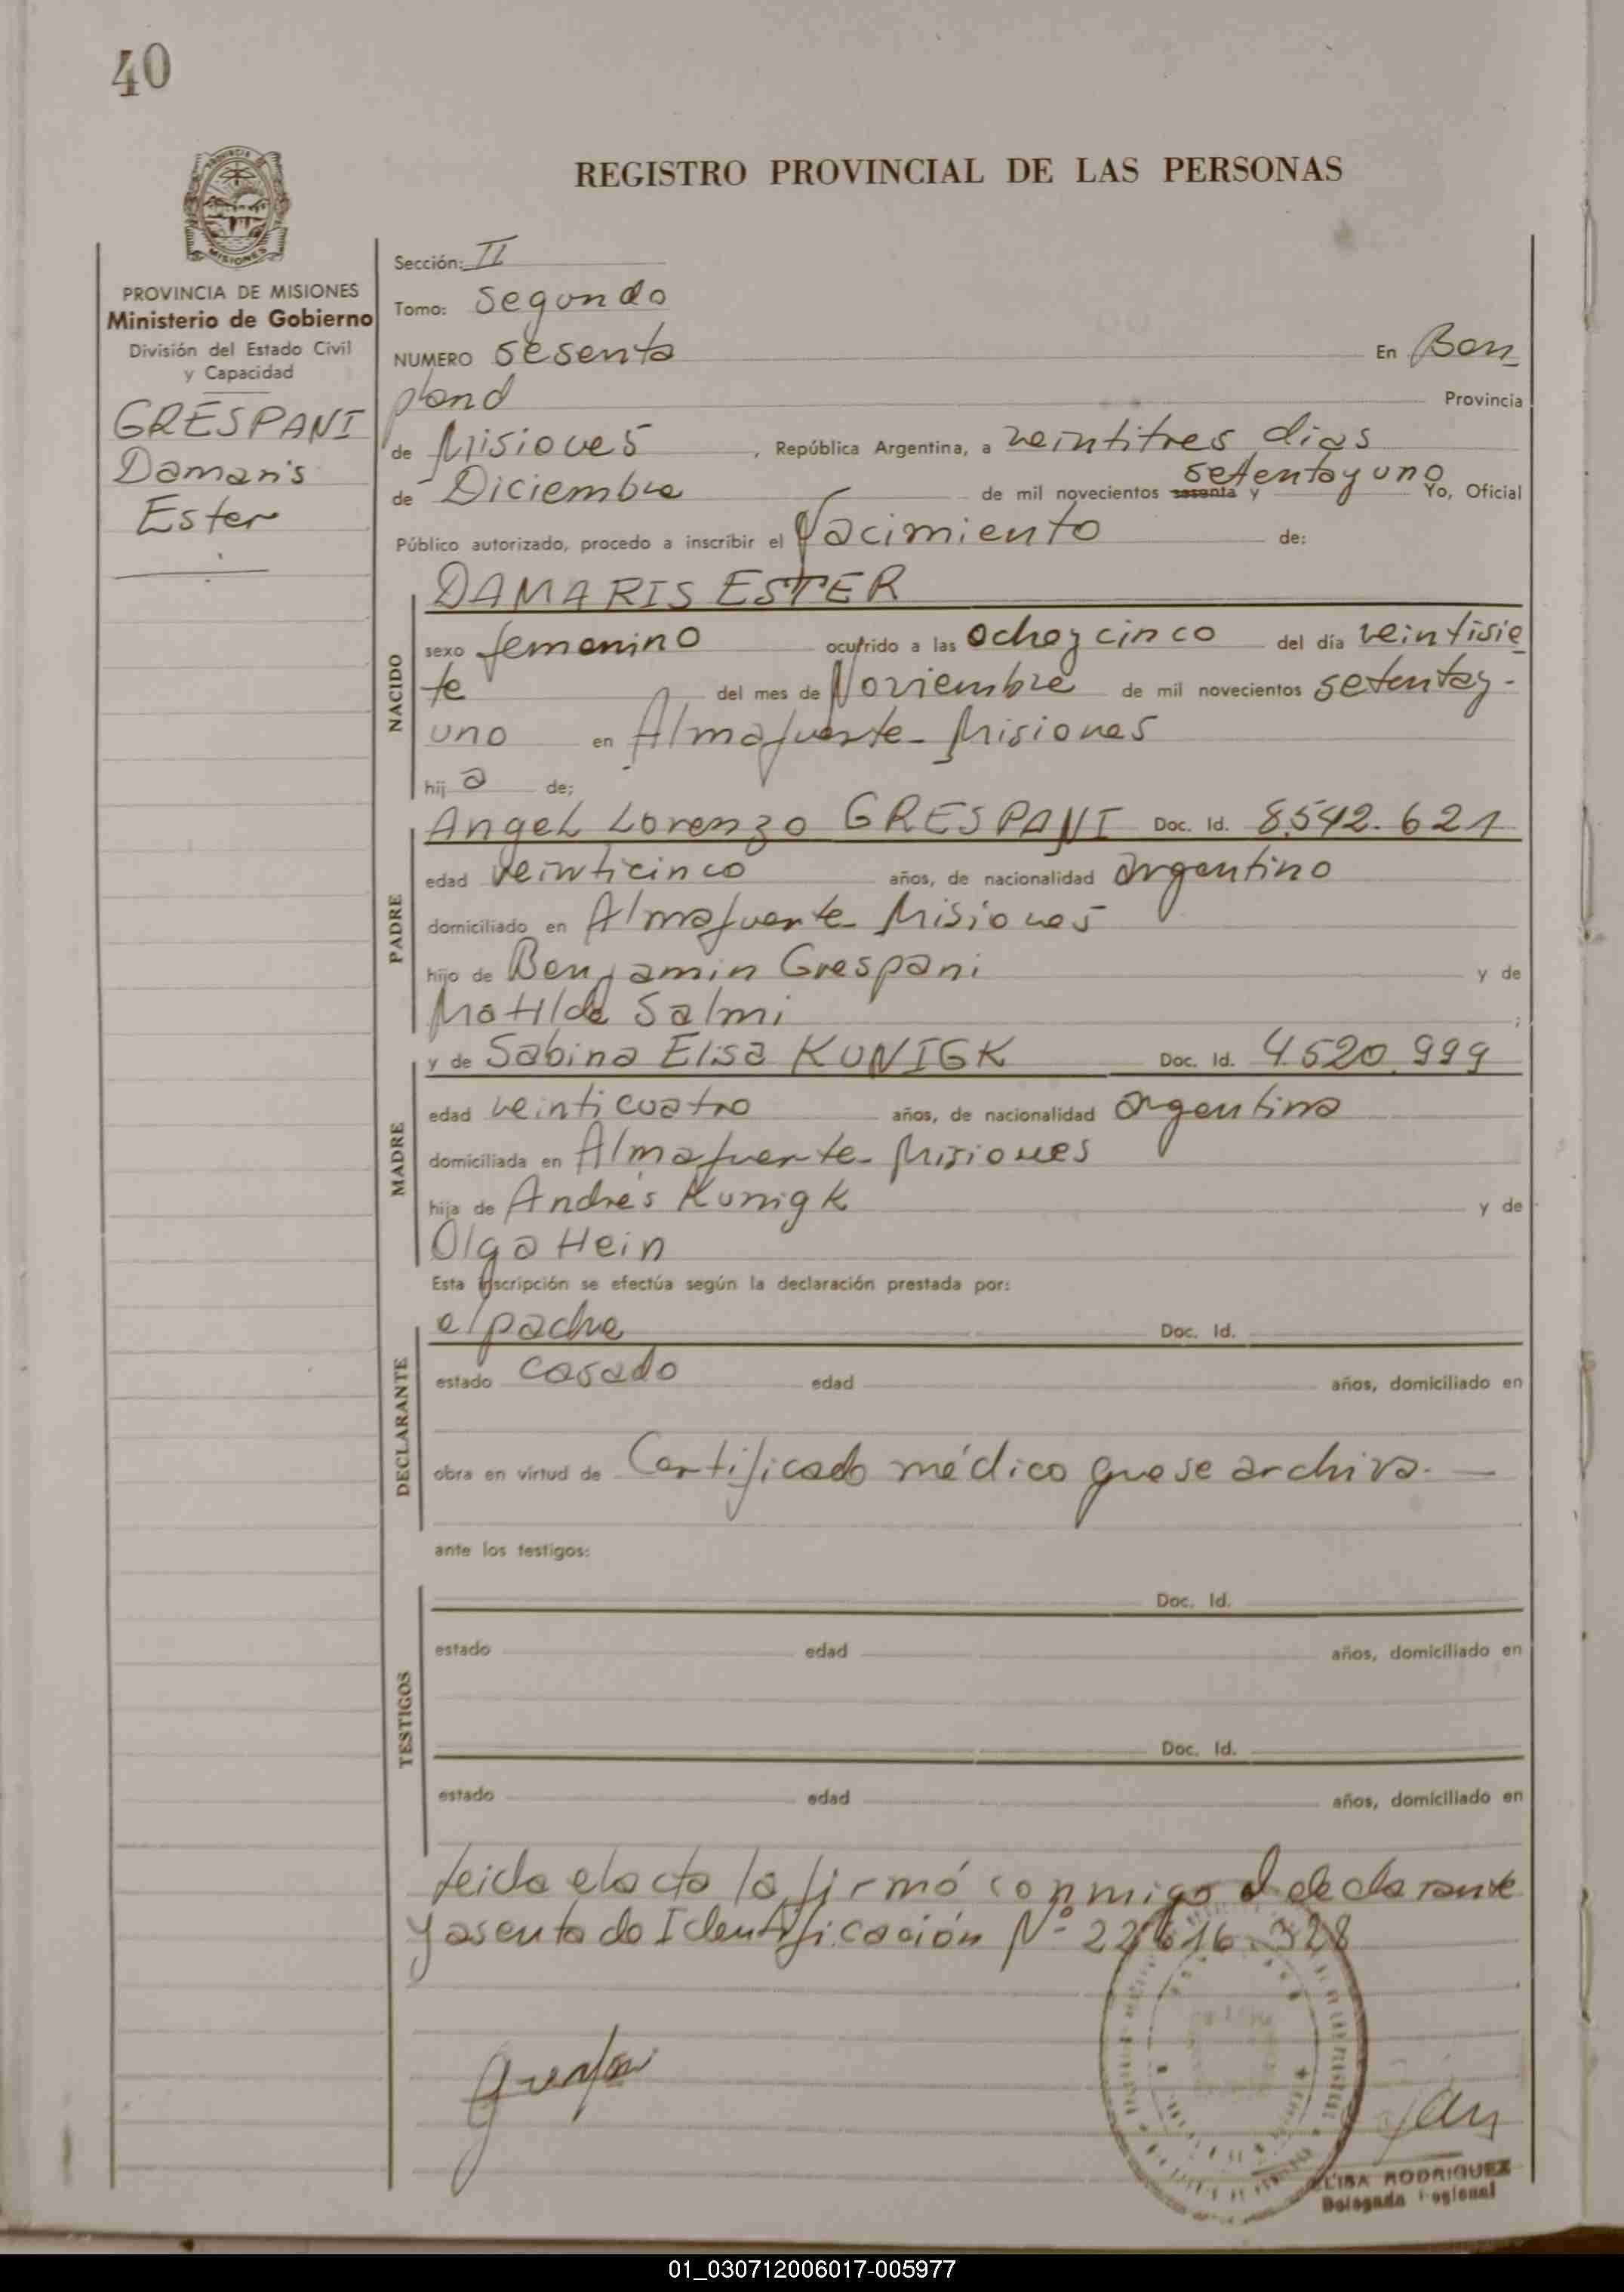 40
REGISTRO PROVINCIAL DE LAS PERSONAS
MISIONES
PROVINCIA DE MISIONES
Ministerio de Gobierno
División del Estado Civil
y Capacidad
GRESPANI
Damaris
Ester
Sección: II
Tomo: Segundo
NUMERO Sesenta En Bon
pland Provincia
de Misiones, República Argentina, a veintitres dias
de Diciembre de mil novecientos sesenta y setenta y uno Yo, Oficial
Público autorizado, procedo a inscribir el Nacimiento de:
NACIDO
DAMARIS ESTER
sexo femenino ocurrido a las ocho y cinco del día veintisie
te del mes de Noviembre de mil novecientos setenta y-
uno en Almafuerte- Misiones
hij a de;
PADRE
Angel Lorenzo GRESPANI Doc. Id. 8.542.621
edad veinticinco años, de nacionalidad argentino
domiciliado en Almafuerte- Misiones
hijo de Benjamin Grespani y de
Matilde Salmi ;
MADRE
y de Sabina Elisa KUNIGK Doc. Id. 4.520.999
edad veinticuatro años, de nacionalidad argentina
domiciliada en Almafuerte- Misiones
hija de Andrés Kunigk y de
Olga Hein
Esta inscripción se efectúa según la declaración prestada por:
DECLARANTE
el padre Doc. Id.
estado casado edad años, domiciliado en
obra en virtud de Certificado médico que se archiva.—
ante los testigos:
TESTIGOS
Doc. Id.
estado edad años, domiciliado en
Doc. Id.
estado edad años, domiciliado en
leida el acta la firmó conmigo el declarante
y asentado Identificación Nº 22.616.328
ELISA RODRIGUEZ
Delegada Regional
01_030712006017-005977